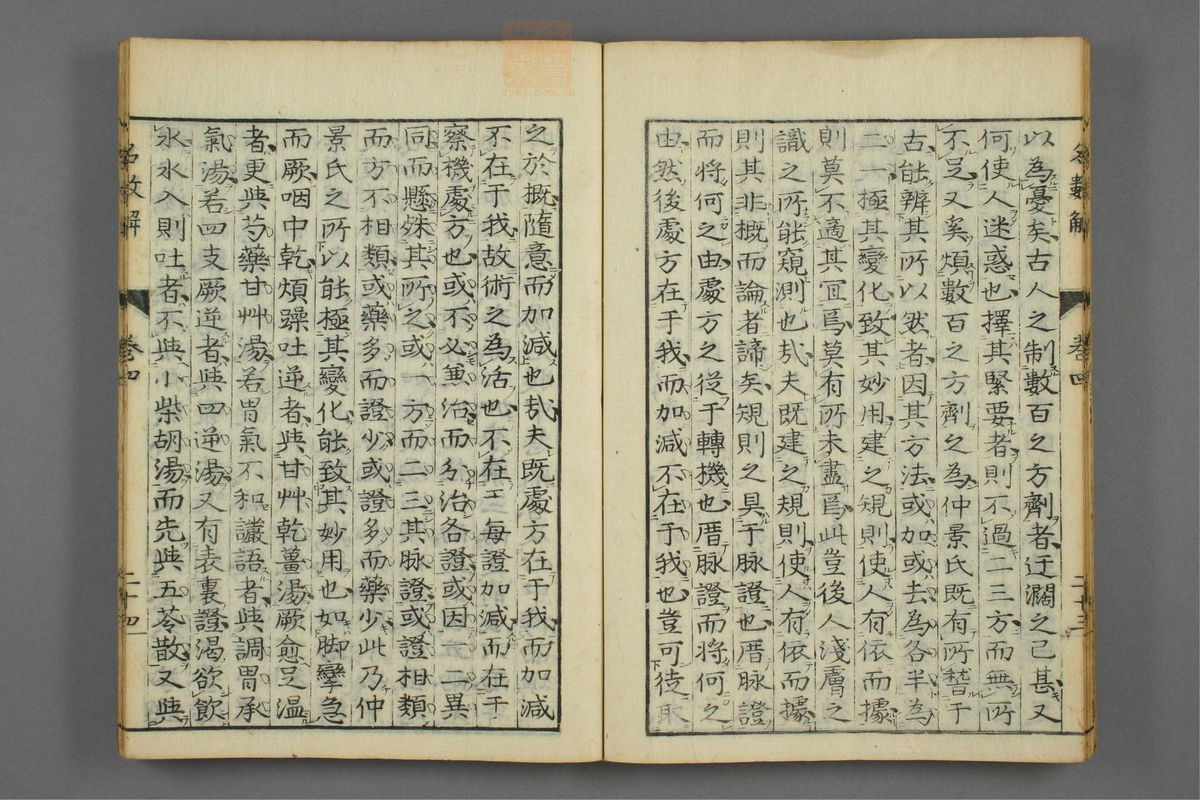 以為憂矣古人之制數百之方劑者迂濶之已甚又
何使人迷惑也擇其緊要者則不過二三方而無所
不足又奚煩數百之方劑之為仲景氏既有所稽于
古能辨其所以然者因其方法或加或去為各半為
二一極其變化致其妙用建之規則使人有依而據
則莫不適其冝焉莫有所未盡焉此豈後人淺膚之
識之所能窺測也哉夫既建之規則使人有依而據
則其非概而論者諦矣規則之具于脉證也厝脉證
而將何之由處方之從于轉機也厝脉證而將何之
由然後處方在于我而加減不在于我也豈可徒取
之於概隨意而加減也哉夫既處方在于我而加減
不在于我故術之為活也不在 每證加減而在于
察機處方也或不必兼治而分治各證或因一二異
同而懸殊其所之或一方而二三其脉證或證相類
而方不相類或藥多而證少或證多而藥少此乃仲
景氏之所以能極其變化能致其妙用也如脚攣急
而厥咽中乾煩躁吐逆者與甘艸乾薑湯厥愈足温
者更與芍藥甘艸湯若胃氣不和讝語者與調胃承
氣湯若四支厥逆者與四逆湯又有表裏證渴欲飲
水水入則吐者不與小柴胡湯而先與五苓散又與
名數解
卷四
二十三
名數解
卷四
二十四